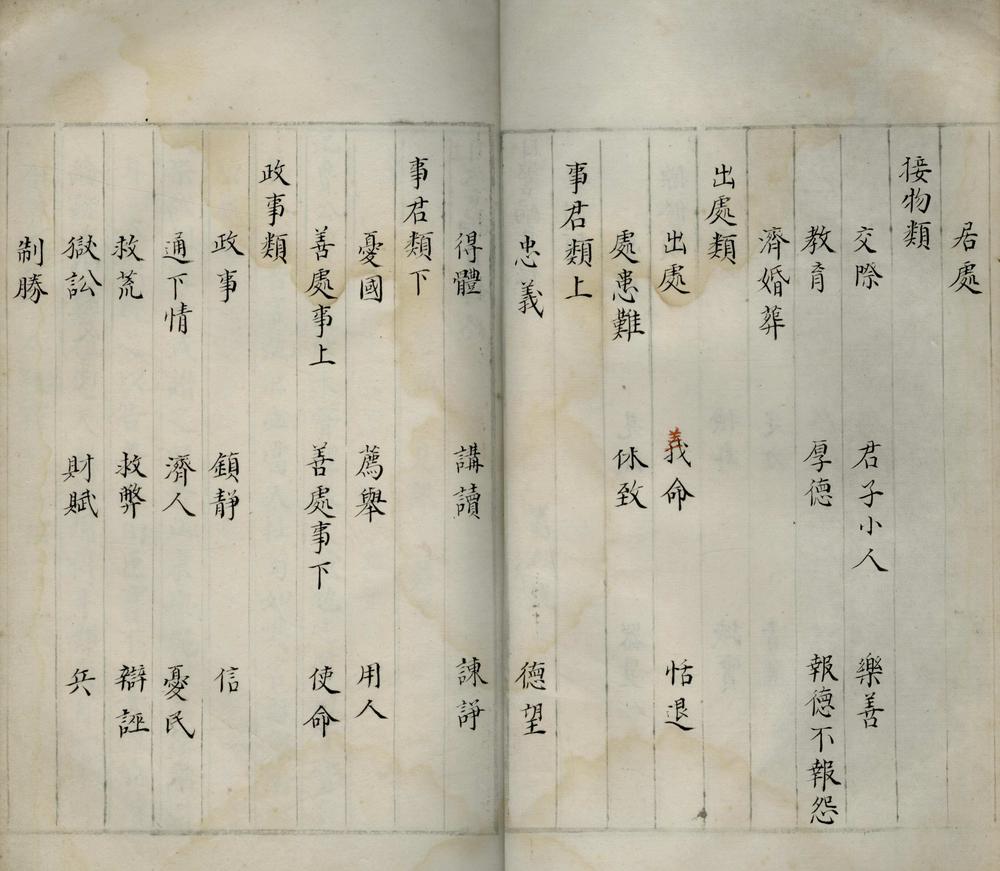 居處
接物類
交際 君子小人 樂善
教育 厚德 報德不報怨
濟婚葬
出處類
出處 義命 恬退
處患難 休致
事君類上
忠義 德望
得體 講讀 諫諍
事君類下
憂國 薦舉 用人
善處事上 善處事下 使命
政事類
政事 鎮靜 信
通下情 濟人 憂民
救荒 救弊 辯誣
獄訟 財賦 兵
制勝